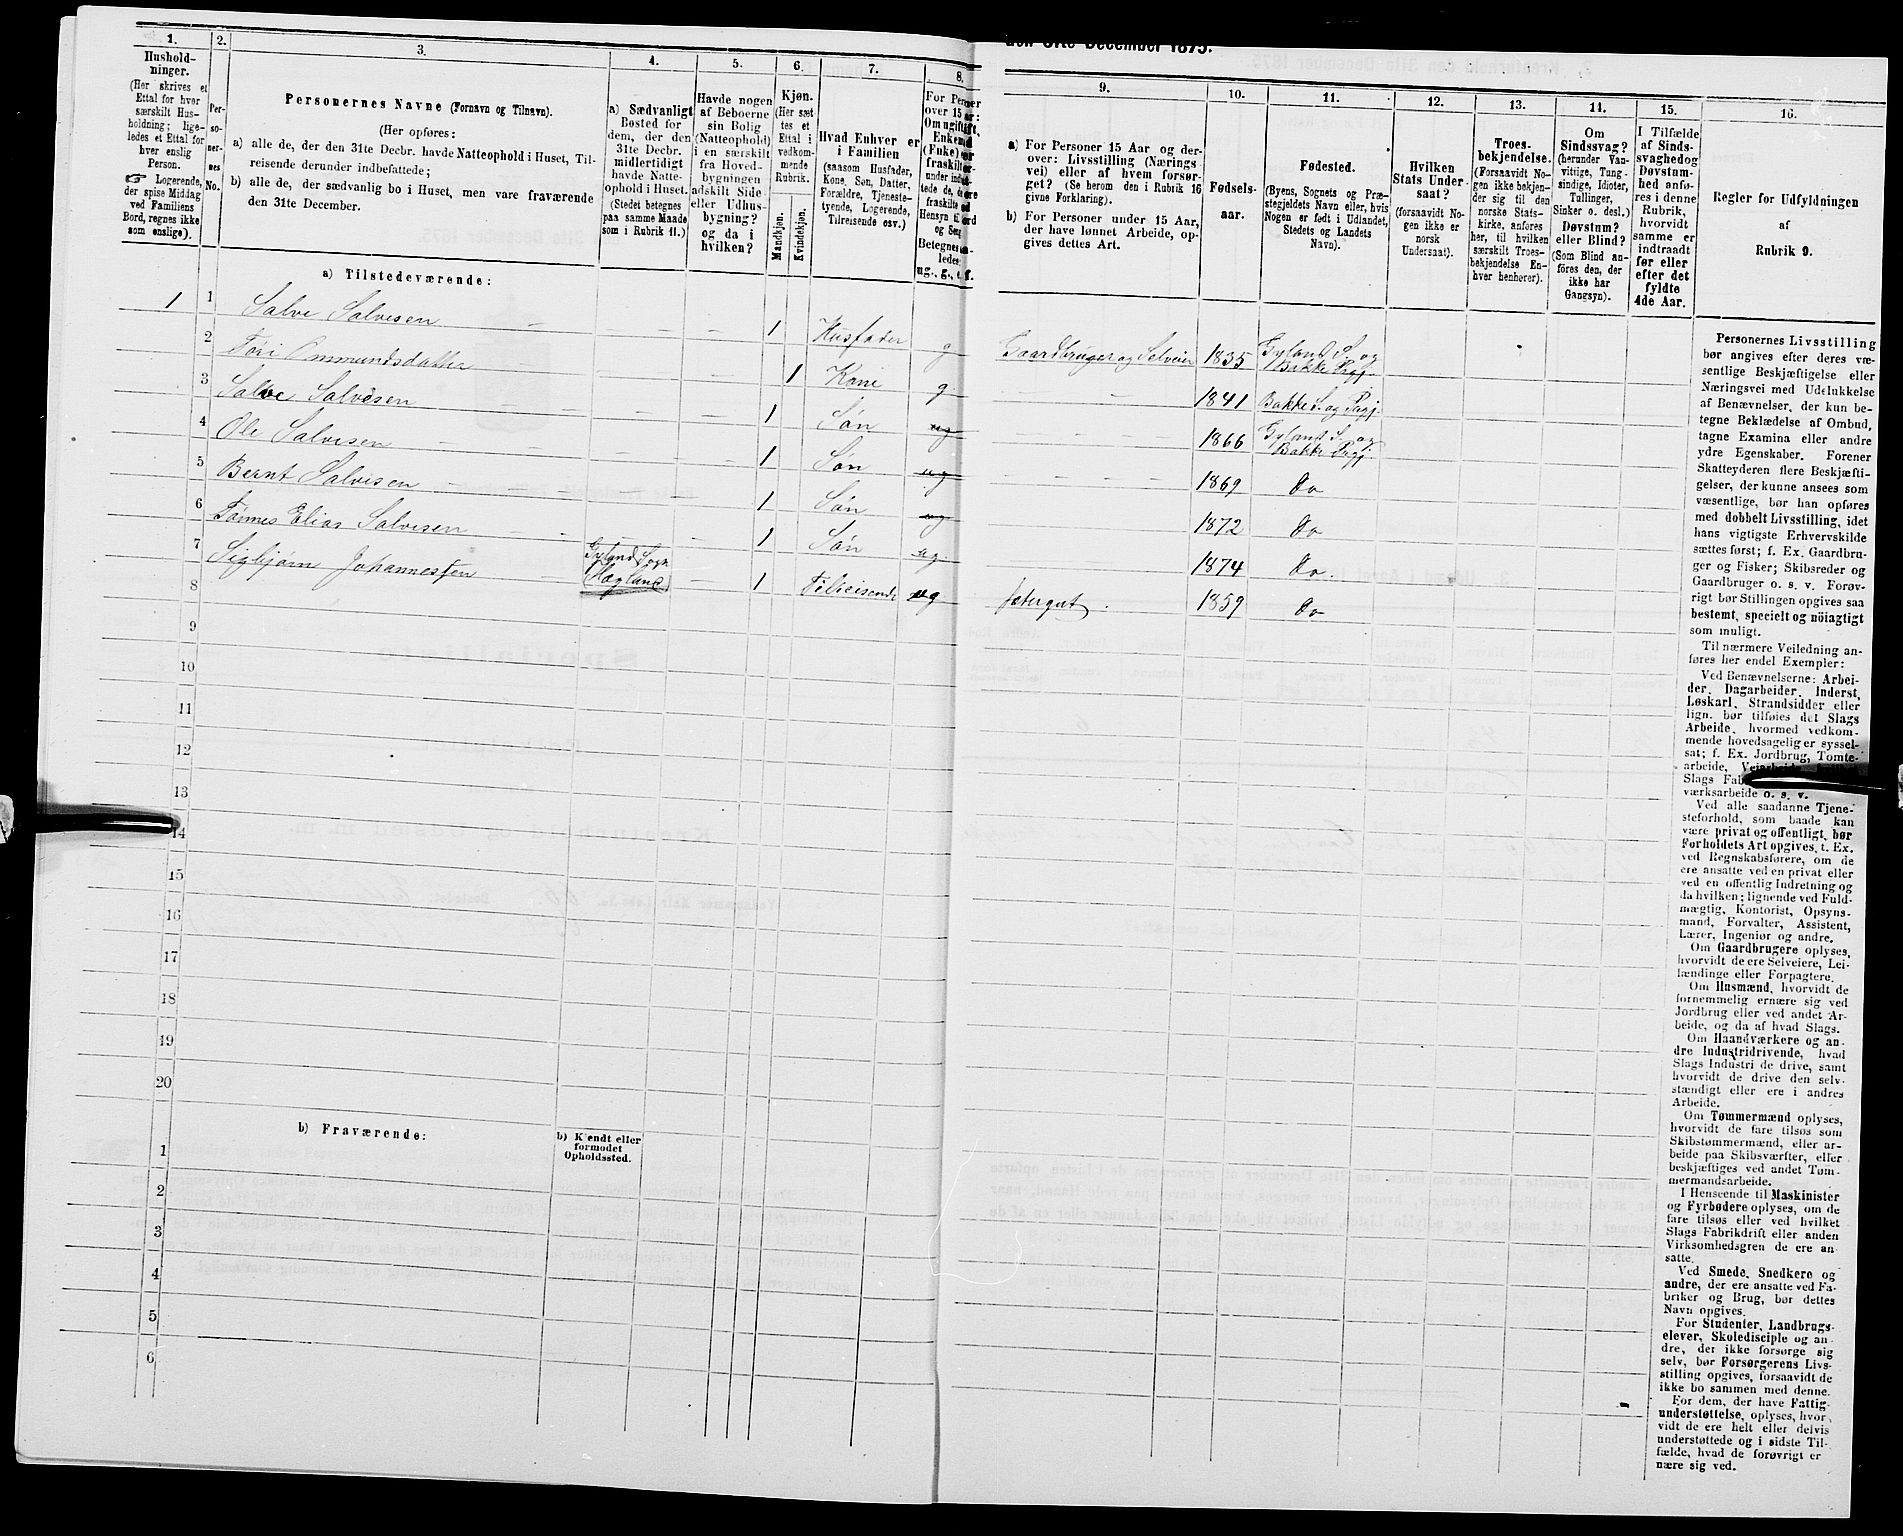 den 31te December 1875.
1.
Hushold-
ninger.
(Her skrives et
Ettal for hver
særskilt Hus-
holdning; lige-
ledes et Ettal for
hver enslig
Person.
☞ Logerende,
der spise Middag
ved Familiens
Bord, regnes ikke
som enslige).
2.
Per-
so-
ner-
nes
No.
3.
Personernes Navne (Fornavn og Tilnavn).
(Her opføres:
a) alle de, der den 31te Decbr. havde Natteophold i Huset, Til-
reisende derunder indbefattede;
b) alle de, der sædvanlig bo i Huset, men vare fraværende
den 31te December.
4.
a) Sædvanligt
Bosted for
dem, der den
31te Decbr.
midlertidigt
havde Natte-
ophold i Huset.
(Stedet betegnes
paa samme Maade
som i Rubrik 11.)
5.
Havde nogen
af Beboerne
sin Bolig
(Natteophold)
i en særskilt
fra Hoved-
bygningen
adskilt Side-
eller Udhus-
bygning?
og da i
hvilken?
6.
Kjøn.
(Her sæt-
tes et
Ettal i
vedkom-
mende
Rubrik.
Mandkjøn.
Kvindekjøn.
7.
Hvad Enhver er
i Familien
(saasom Husfader,
Kone, Søn, Datter,
Forældre, Tjeneste-
tyende, Logerende,
Tilreisende osv.)
8.
9.
a) For Personer 15 Aar og der-
over: Livsstilling (Nærings-
vei) eller af hvem forsør-
get? (Se herom den i Rubrik 16
givne Forklaring).
b) For Personer under 15 Aar,
der have lønnet Arbeide, op-
gives dettes Art.
10.
Fødsels-
aar.
11.
Fødested.
(Byens, Sognets og Præ-
stegjeldets Navn eller, hvis
Nogen er født i Udlandet,
Stedets og Landets
Navn).
12.
Hvilken
Stats Under-
saat?
(forsaavidt No-
gen ikke er
norsk
Undersaat).
13.
Troes-
bekjendelse.
(Forsaavidt No-
gen ikke bekjen-
der sig til den
norske Stats-
kirke, anføres
her, til hvilken
særskilt Troes-
bekjendelse En-
hver henhører).
14.
Om
Sindssvag?
(herunder Van-
vittige, Tung-
sindige, Idioter,
Tullinger,
Sinker o. desl.)
Døvstum?
eller Blind?
(Som Blind an-
føres den, der
ikke har
Gangsyn).
15.
I Tilfælde
af Sinds-
svaghed og
Døvstum-
hed anfø-
res i denne
Rubrik,
hvorvidt
samme er
indtraadt
før eller
efter det
fyldte
4de Aar.
16.
Regler for Udfyldningen
af
Rubrik 9.
a) Tilstedeværende:
1 1 Salve Salvesen 1 Husfader g Gaardbruger og Selveier 1835 Gyland S. og Bakke Prgj.
2 Tori Ommundsdatter 1 Kone g 1841 Bakke S. og Prgj.
3 Salve Salvesen 1 Søn ug 1866 Gyland S. og Bakke Prgj.
4 Ole Salvesen 1 Søn ug 1869 Do
5 Bernt Salvesen 1 Søn ug 1872 Do
6 Tønnes Elias Salvesen 1 Søn ug 1874 Do.
7 Sigbjørn Johannessen Gyland Sogn (Hægland) 1 Tilreisende ug 1859 Do
8
9
10
11
12
13
14
15
16
17
18
19
20
b) Fraværende:
b) Kjendt eller
formodet
Opholdssted.
1
2
3
4
5
6
Personernes Livsstilling
bør angives efter deres væ-
sentlige Beskjæftigelse eller
Næringsvei med Udelukkelse
af Benævnelser, der kun be-
tegne Beklædelse af Ombud,
tagne Examina eller andre
ydre Egenskaber. Forener
Skatteyderen flere Beskjæfti-
gelser, der kunne ansees som
væsentlige, bør han opføres
med dobbelt Livsstilling, idet
hans vigtigste Erhvervskilde
sættes først; f. Ex. Gaardbru-
ger og Fisker; Skibsreder og
Gaardbruger o. s. v. Forøv-
rigt bør Stillingen opgives saa
bestemt, specielt og nöiagtigt
som muligt.
Til nærmere Veiledning an-
føres her endel Exempler:
Ved Benævnelserne: Arbei-
der, Dagarbeider, Inderst,
Løskarl, Strandsidder eller
lign. bør tilføies det Slags
Arbeide, hvormed vedkom-
mende hovedsagelig er syssel-
sat; f. Ex. Jordbrug, Tomte-
arbeide, Veiarbeide,
Slags
værksarbeide o. s. v.
Ved alle saadanne Tjene-
steforhold, som baade kan
være privat og offentligt, bør
Forholdets Art opgives, t. Ex.
ved Regnskabsførere, om de
ere ansatte ved en privat eller
ved en offentlig Indretning og
da hvilken; lignende ved Fuld-
mægtig, Kontorist, Opsyns-
mand, Forvalter, Assistent,
Lærer, Ingeniør og andre.
Om Gaardbrugere oplyses,
hvorvidt de ere Selveiere, Lei-
lændinge eller Forpagtere.
Om Husmænd, hvorvidt de
fornemmelig ernære sig ved
Jordbrug eller ved andet Ar-
beide, og da af hvad Slags.
Om Haandværkere og an-
dre Industridrivende, hvad
Slags Industri de drive, samt
hvorvidt de drive den selv-
stændigt eller ere i andres
Arbeide.
Om Tømmermænd oplyses,
hvorvidt de fare tilsøs som
Skibstømmermænd, eller ar-
beide paa Skibsværfter, eller
beskjæftiges ved andet Tøm-
mermandsarbeide.
I Henseende til Maskinister
og Fyrbødere oplyses, om de
fare tilsøs eller ved hvilket
Slags Fabrikdrift eller anden
Virksomhedsgren de ere an-
satte.
Ved Smede, Snedkere og
andre, der ere ansatte ved Fa-
briker og Brug, bør dettes
Navn opgives.
For Studenter, Landbrugs-
elever, Skoledisciple og an-
dre, der ikke forsørge sig
selv, bør Forsørgerens Livs-
stilling opgives, forsaavidt de
ikke bo sammen med denne.
For dem, der have Fattig-
understøttelse, oplyses, hvor-
vidt de ere helt eller delvis
understøttede og i sidste Til-
fælde, hvad de forøvrigt er-
nære sig ved.